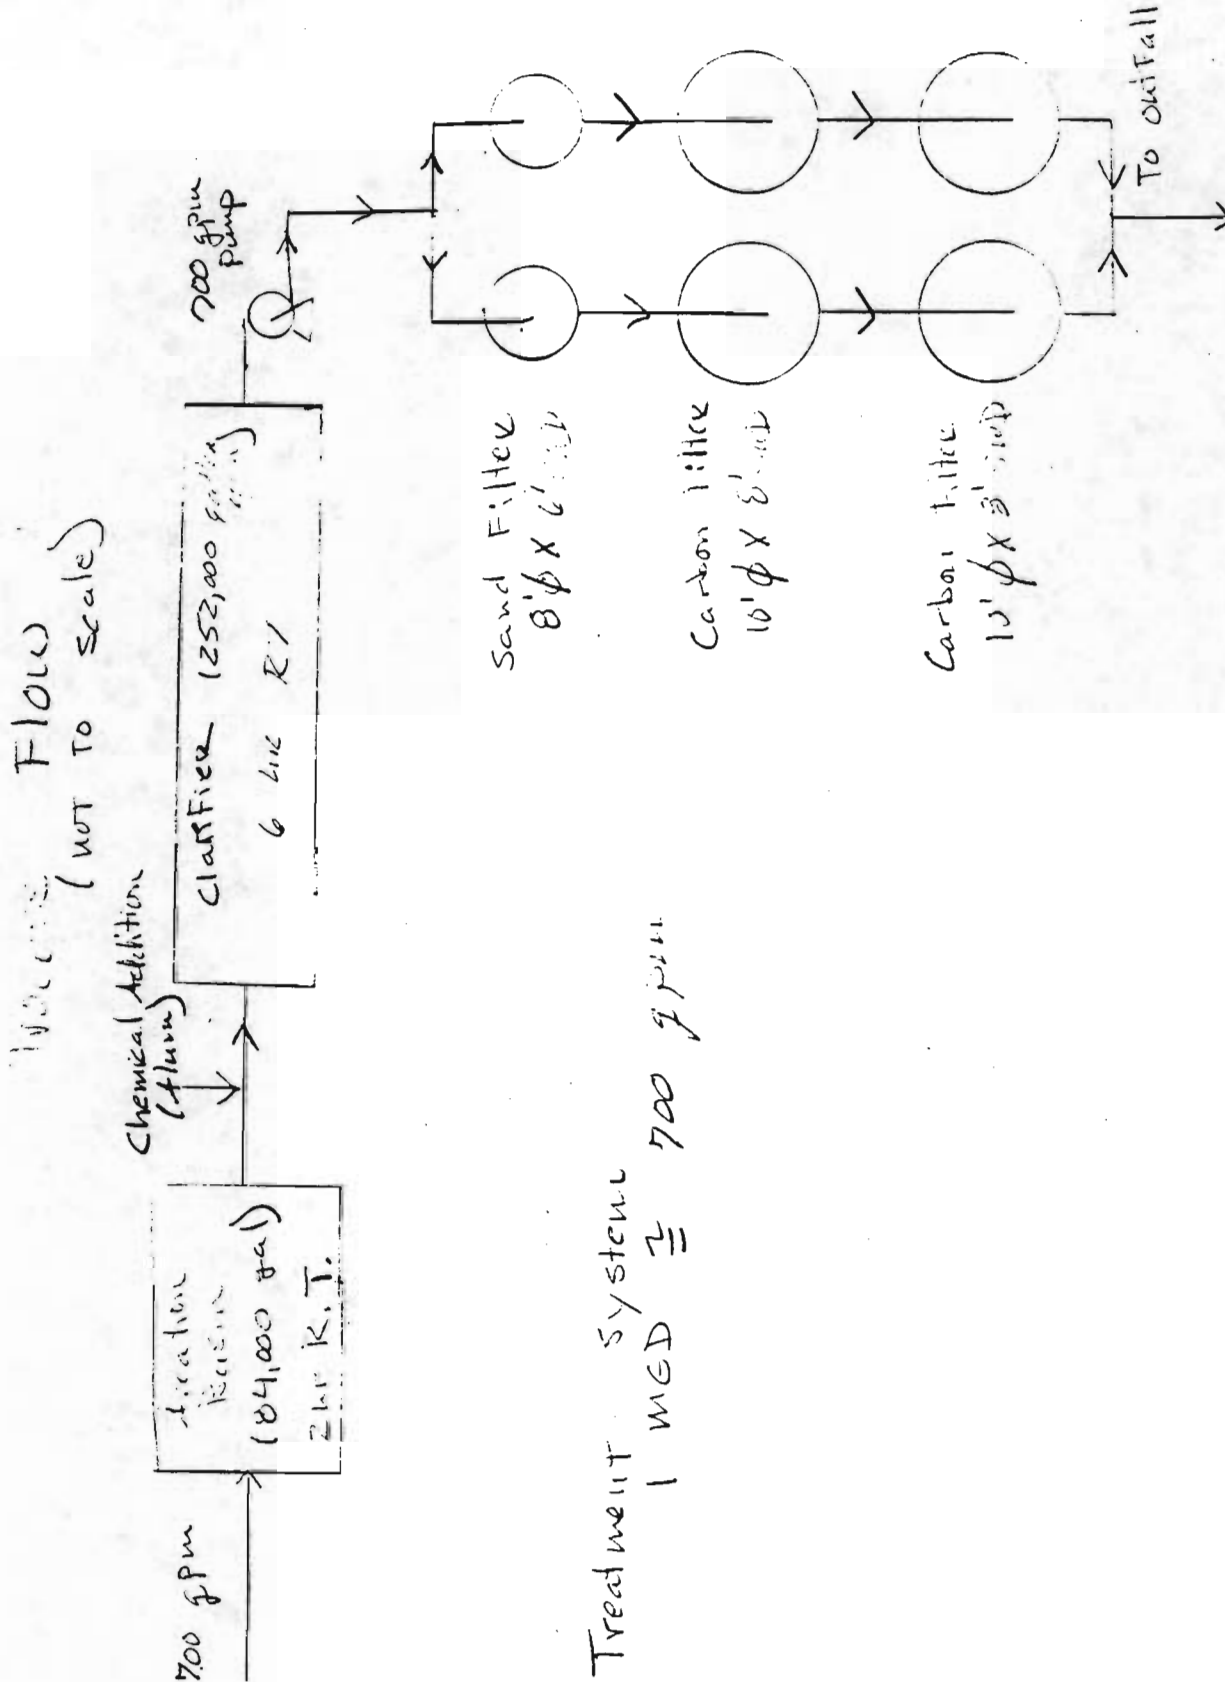 Flow
(not to scale)
700 gpm
Aeration
Basin
(84,000 gal)
2 hr R.T.
Chemical Addition
(Alum)
Clarifier (252,000
6 HR RT
700 gpm
pump
Sand Filter
8'ϕ x 6'
Carbon Filter
10'ϕ x 8'
Carbon Filter
10'ϕ x
To outfall
Treatment System
1 MGD ≅ 700 gpm